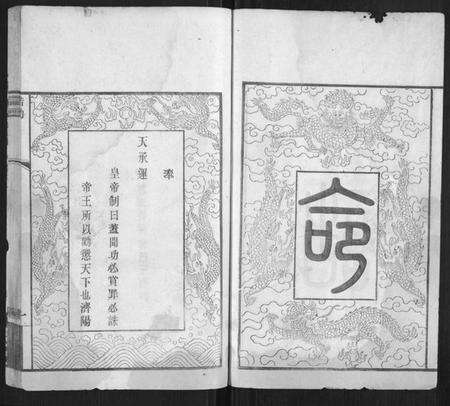 命
奉
天承運
皇帝制曰蓋聞功必賞罪必誅
帝王所以勸懲天下也濟陽